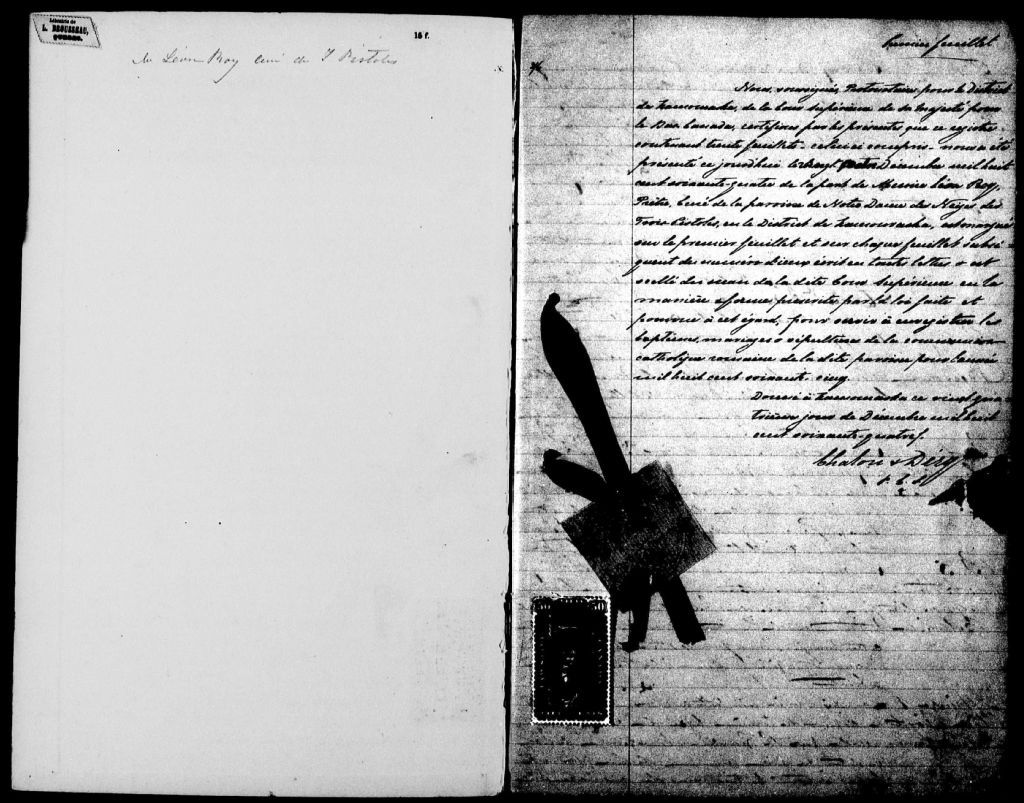 Librairie de
L. BROUSSEAU,
QUEBEC.
16 f.
Mr Léon Roy curé de 3 Pistoles
Premier feuillet
Nous, soussignés, Protonotaire pour le District
de Kamouraska, de la Cour Supérieure de Sa Majesté pour
le Bas Canada, certifions par les présentes que ce registre
contenant trente feuillets - celui ci compris - nous a été
présenté ce jourd'hui le vingt quatre Décembre mil huit
cent soixante-quatre de la part de Messire Léon Roy,
Prêtre, Curé de la paroisse de Notre Dame des Neiges des
Trois Pistoles, en le District de Kamouraska, est marqué
sur le premier feuillet et sur chaque feuillet subsé-
quent du numéro d'iceux écrit en toutes lettres & est
scellé du sceau de la dite Cour Supérieure en la
manière & forme prescrite par la loi faite et
pourvue à cet égard, pour servir à enregistrer les
baptêmes, mariages & sépultures de la communion
catholique romaine de la dite paroisse pour l'année
mil huit cent soixante-cinq.
Donné à Kamouraska ce vingt qua
trième jour de Décembre mil huit
cent soixante-quatre.
Chaloult & Déry
P. C. S.